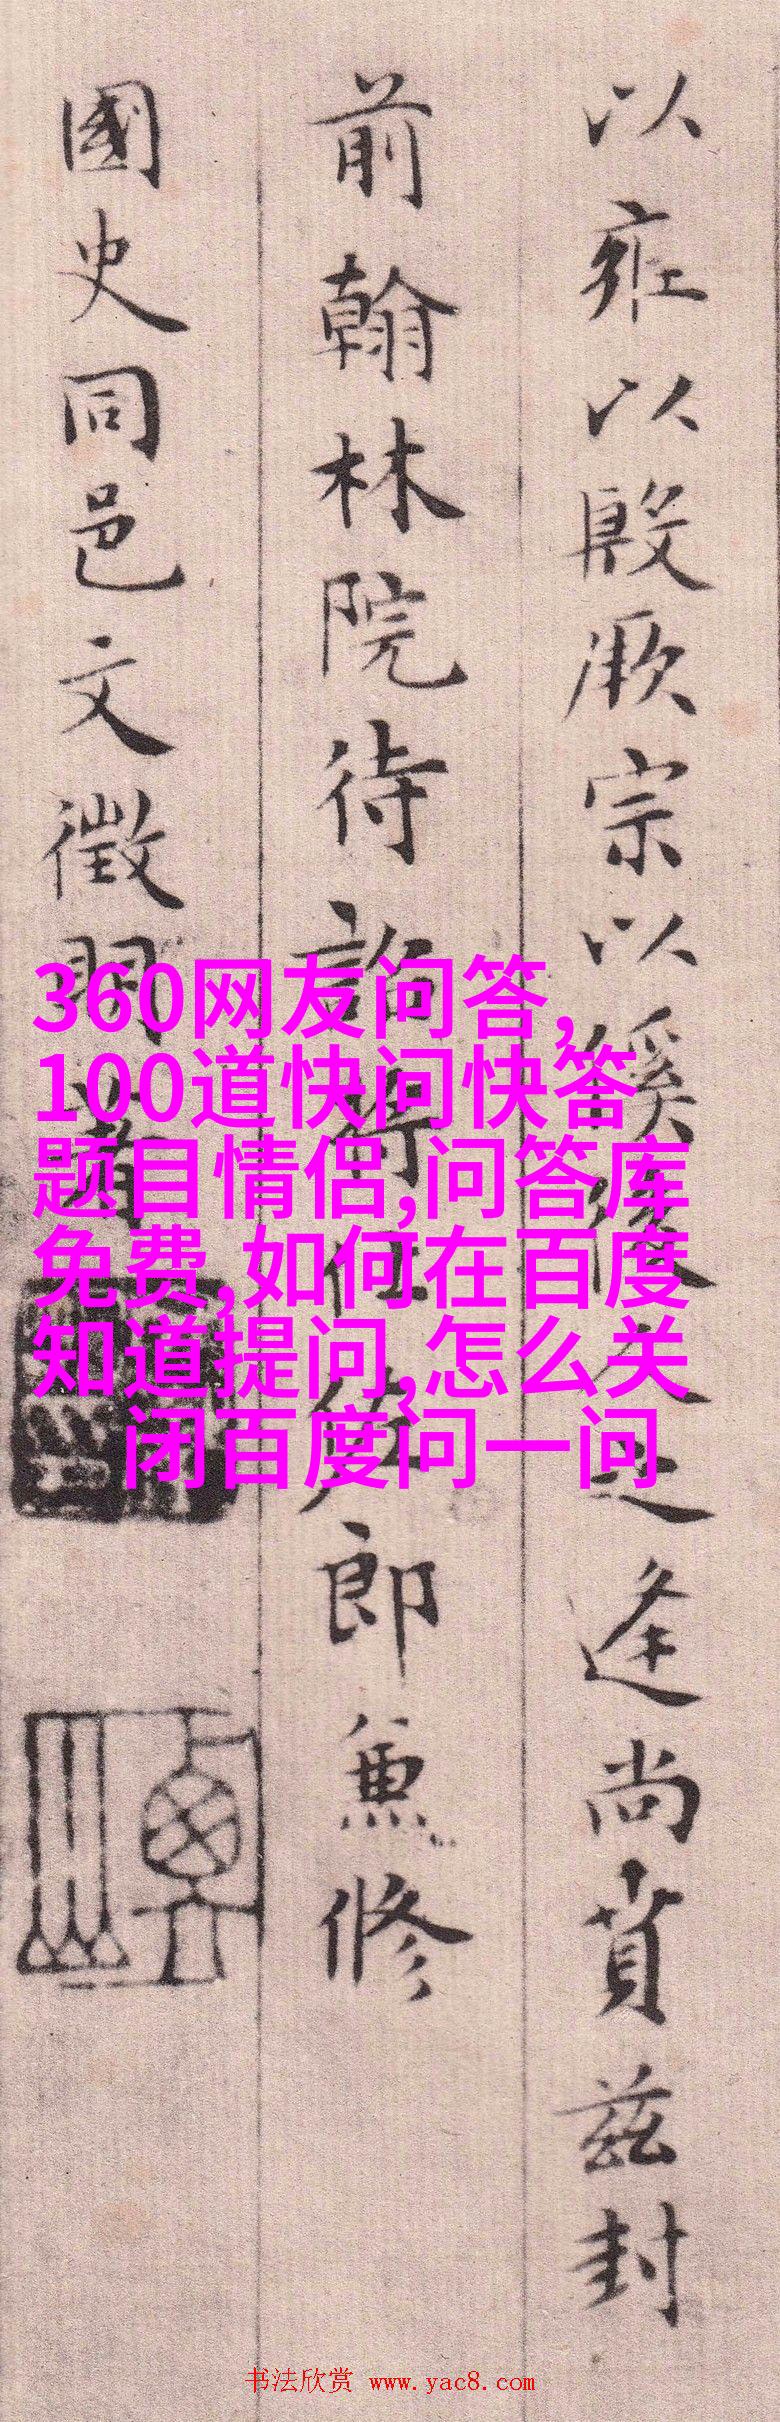 以雍以殷厥宗以蹊後人之逢尚賁茲封
前翰林院待詔將仕佐郎兼修
國史同邑文徵明書
360网友问答,
100道快问快答
题目情侣,问答库
免费,如何在百度
知道提问,怎么关
闭百度问一问
书法欣赏 www.yac8.com